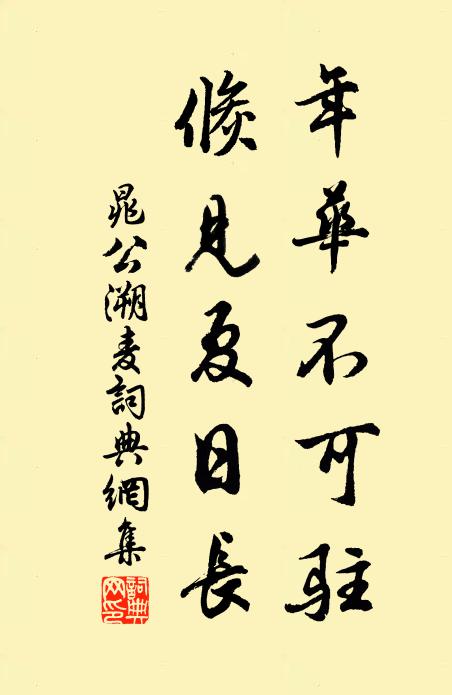 年華不可駐
倐見夏日長
晁公溯麦詞典網集
詞典网印